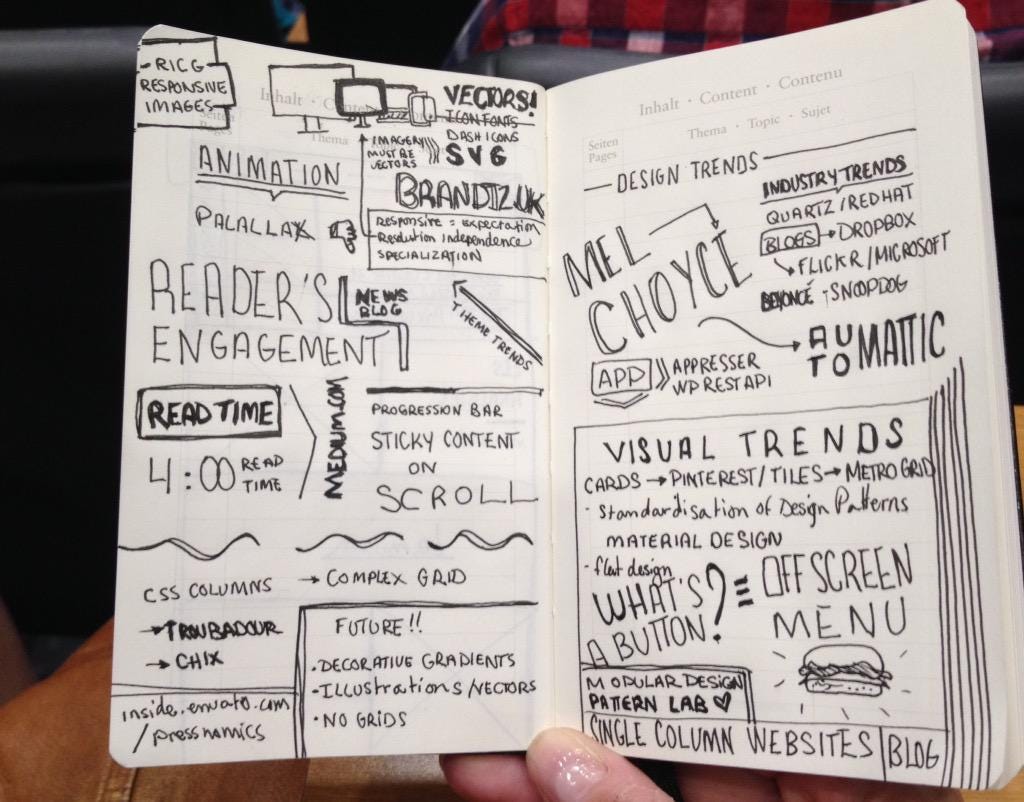 RICG
RESPONSIVE
IMAGES
VECTORS!
ICON FONTS
DASHICONS
SVG
IMAGERY
MUST BE
VECTORS
ANIMATION
BRANDIZ.UK
PALALLAX
RESPONSIVE = EXPECTATION
Resolution independence
SPECIALIZATION
READER'S
ENGAGEMENT
NEWS
BLOG
THEME TRENDS
READ TIME
4:00 READ
TIME
MEDIUM.COM
PROGRESSION BAR
STICKY CONTENT
ON
SCROLL
CSS COLUMNS → COMPLEX GRID
→ TROUBADOUR
→ CHIX
inside.envato.com
/pressnomics
FUTURE!!
• DECORATIVE GRADIENTS
• ILLUSTRATIONS/VECTORS
• NO GRIDS
Inhalt · Content · Contenu
Seiten
Pages
Thema · Topic · Sujet
DESIGN TRENDS
INDUSTRY TRENDS
QUARTZ/REDHAT
BLOGS → DROPBOX
FLICKR/MICROSOFT
BEYONCÉ - SNOOPDOG
MEL
CHOYCE
AUTOMATTIC
APP APPRESSER
WP REST API
VISUAL TRENDS
CARDS → PINTEREST/TILES → METRO GRID
- Standardisation of Design Patterns
MATERIAL DESIGN
- flat design
WHAT'S
A BUTTON?
≡ OFFSCREEN
MENU
MODULAR DESIGN
PATTERN LAB ♡
SINGLE COLUMN WEBSITES
BLOG